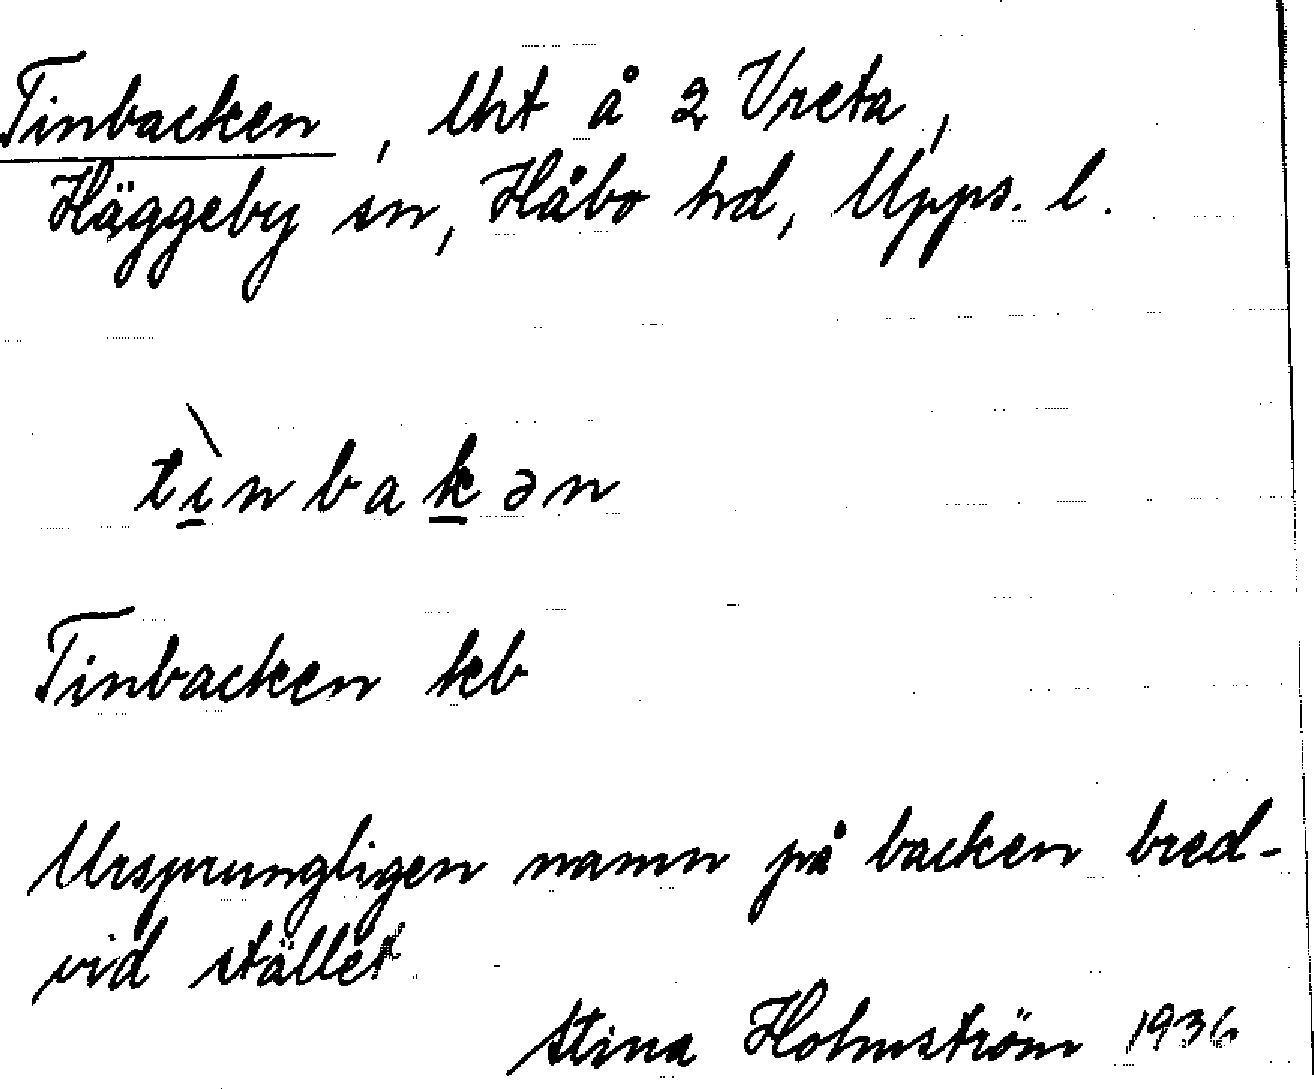 Tinbacken, lht å 2 Vreta,
Häggeby sn, Håbo hd, Upps. l.
tìnbakən
Tinbacken kb
Ursprungligen namn på backen bred-
vid stället
Stina Holmström 1936